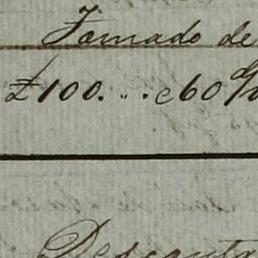 Tomado de
£100. .. . c60
Descont